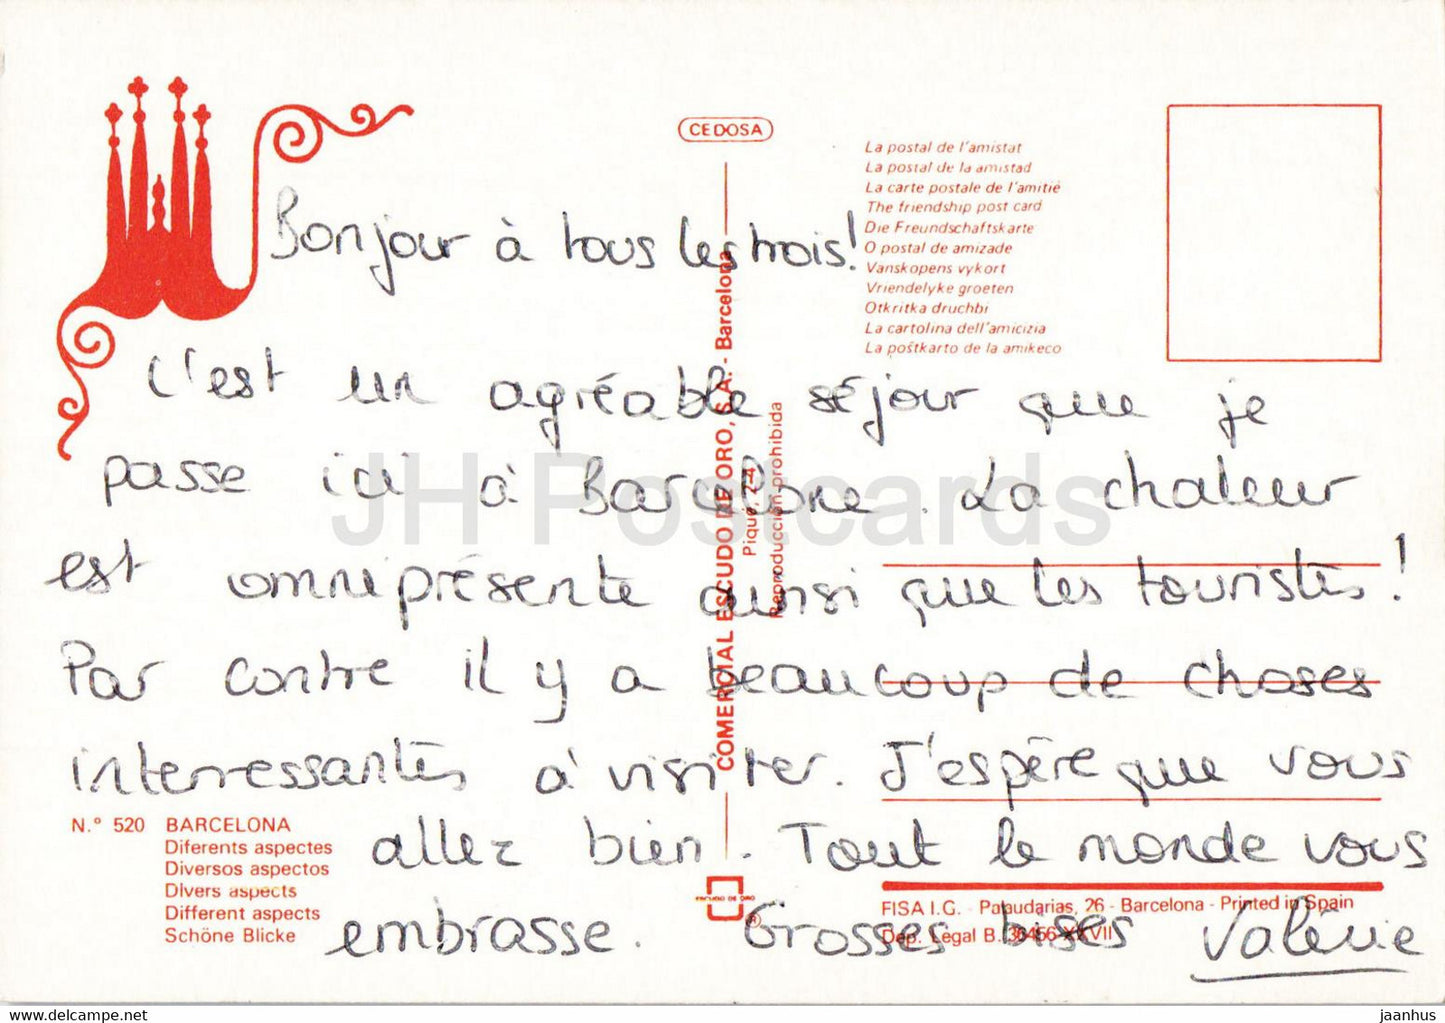 CEDOSA
La postal de l'amistat
La postal de la amistad
La carte postale de l'amitié
The friendship post card
Die Freundschaftskarte
O postal de amizade
Vanskopens vykort
Vriendelyke groeten
Otkritka druchbi
La cartolina dell'amicizia
La poŝtkarto de la amikeco
Bonjour à tous les trois!
C'est un agréable séjour que je
passe ici à Barcelone. La chaleur
est omniprésente ainsi que les touristes!
Par contre il y a beaucoup de choses
interressantes à visiter. J'espère que vous
allez bien. Tout le monde vous
embrasse. Grosses bises Valérie
COMERCIAL ESCUDO DE ORO, S.A. - Barcelona
Piqué, 2-4
Reproducción prohibida
N.º 520 BARCELONA
Diferents aspectes
Diversos aspectos
Divers aspects
Different aspects
Schöne Blicke
ESCUDO DE ORO
®
FISA I.G. - Palaudarias, 26 - Barcelona - Printed in Spain
Dep. Legal B. 30456-XXVII
JH Postcards
jaanhus - https://jhpostcards.com
jaanhus